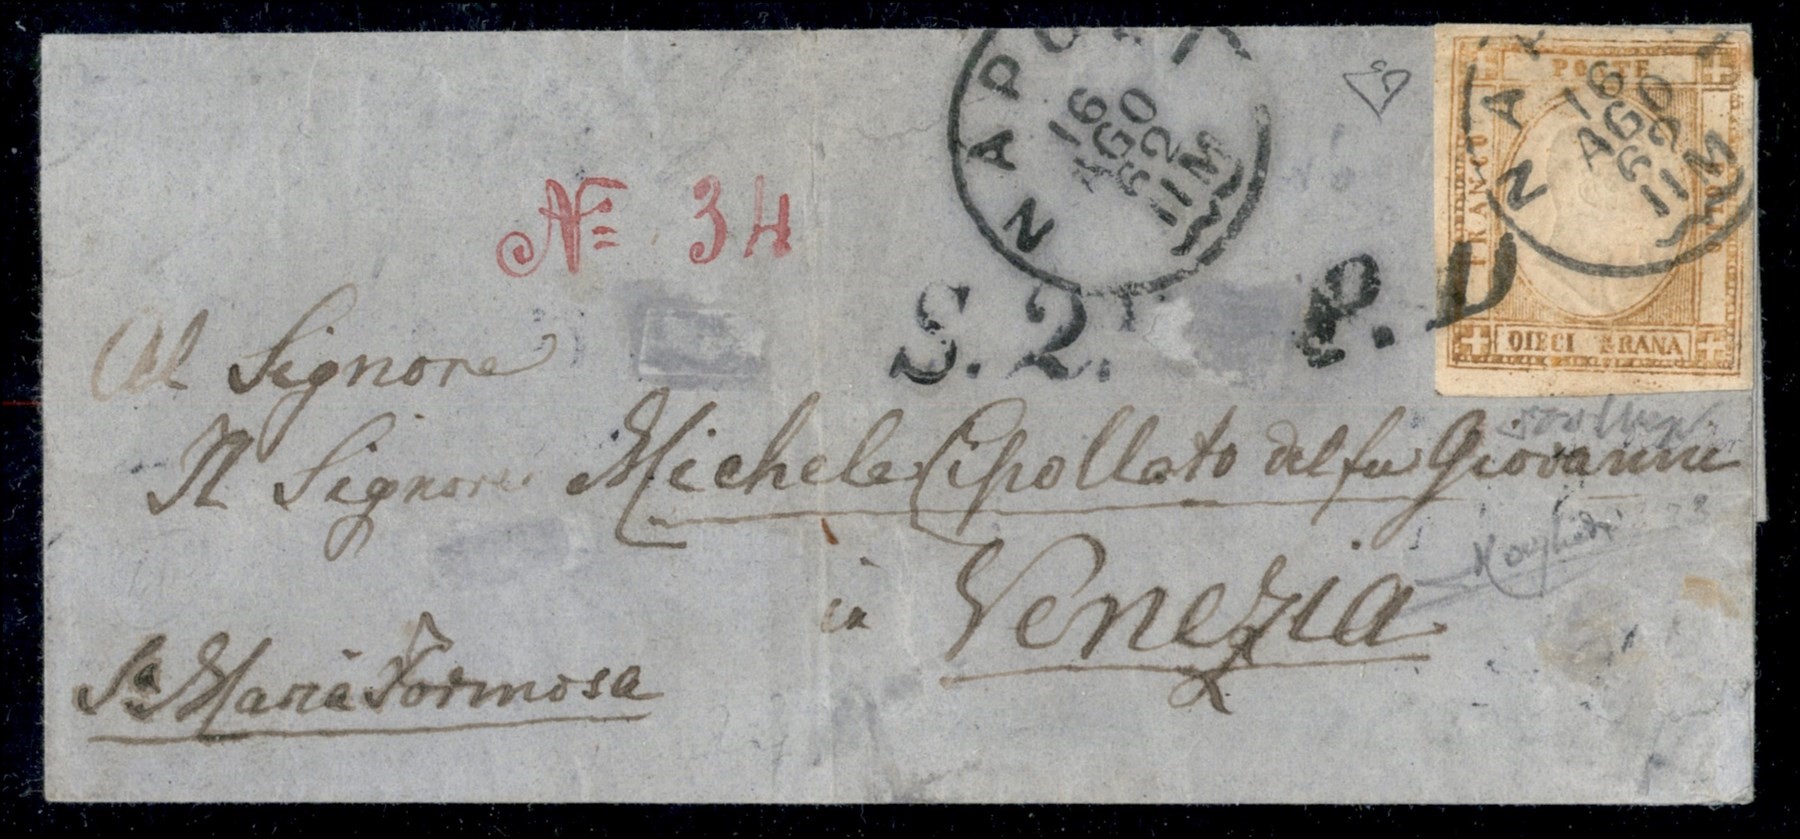 NAPOLI
16
AGO
62
11 M
POSTE
FRANCO
BOLLO
DIECI GRANA
NA
16
AGO
62
11 M
Nº 34
S. 2.
P. D
Al Signore
Il Signore Michele Cipollato del fu Giovanni
in Venezia
Sa Maria Formosa